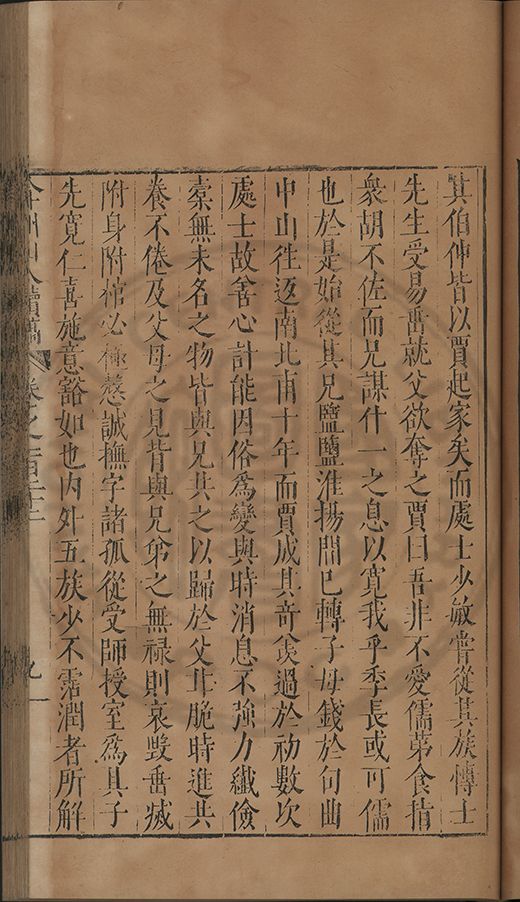 其伯仲皆以賈起家矣而處士少敏嘗從其族博士
先生受易甫就父欲奪之賈曰吾非不愛儒第食指
衆胡不佐而兄謀什一之息以寬我乎季長或可儒
也於是始從其兄鹽鹽淮揚間已轉子母錢於句曲
中山徃返南北甫十年而賈成其奇羨過於初數次
處士故善心計能因俗爲變與時消息不強力纖儉
槖無未名之物皆與兄共之以歸於父甘脆時進共
養不倦及父母之見背與兄弟之無禄則哀毁垂㓕
附身附棺必極慤誠撫字諸孤從受師授室爲具子
先寬仁喜施意豁如也内外五族少不霑潤者所解
弇州山人續稿 卷之一百二十三 九